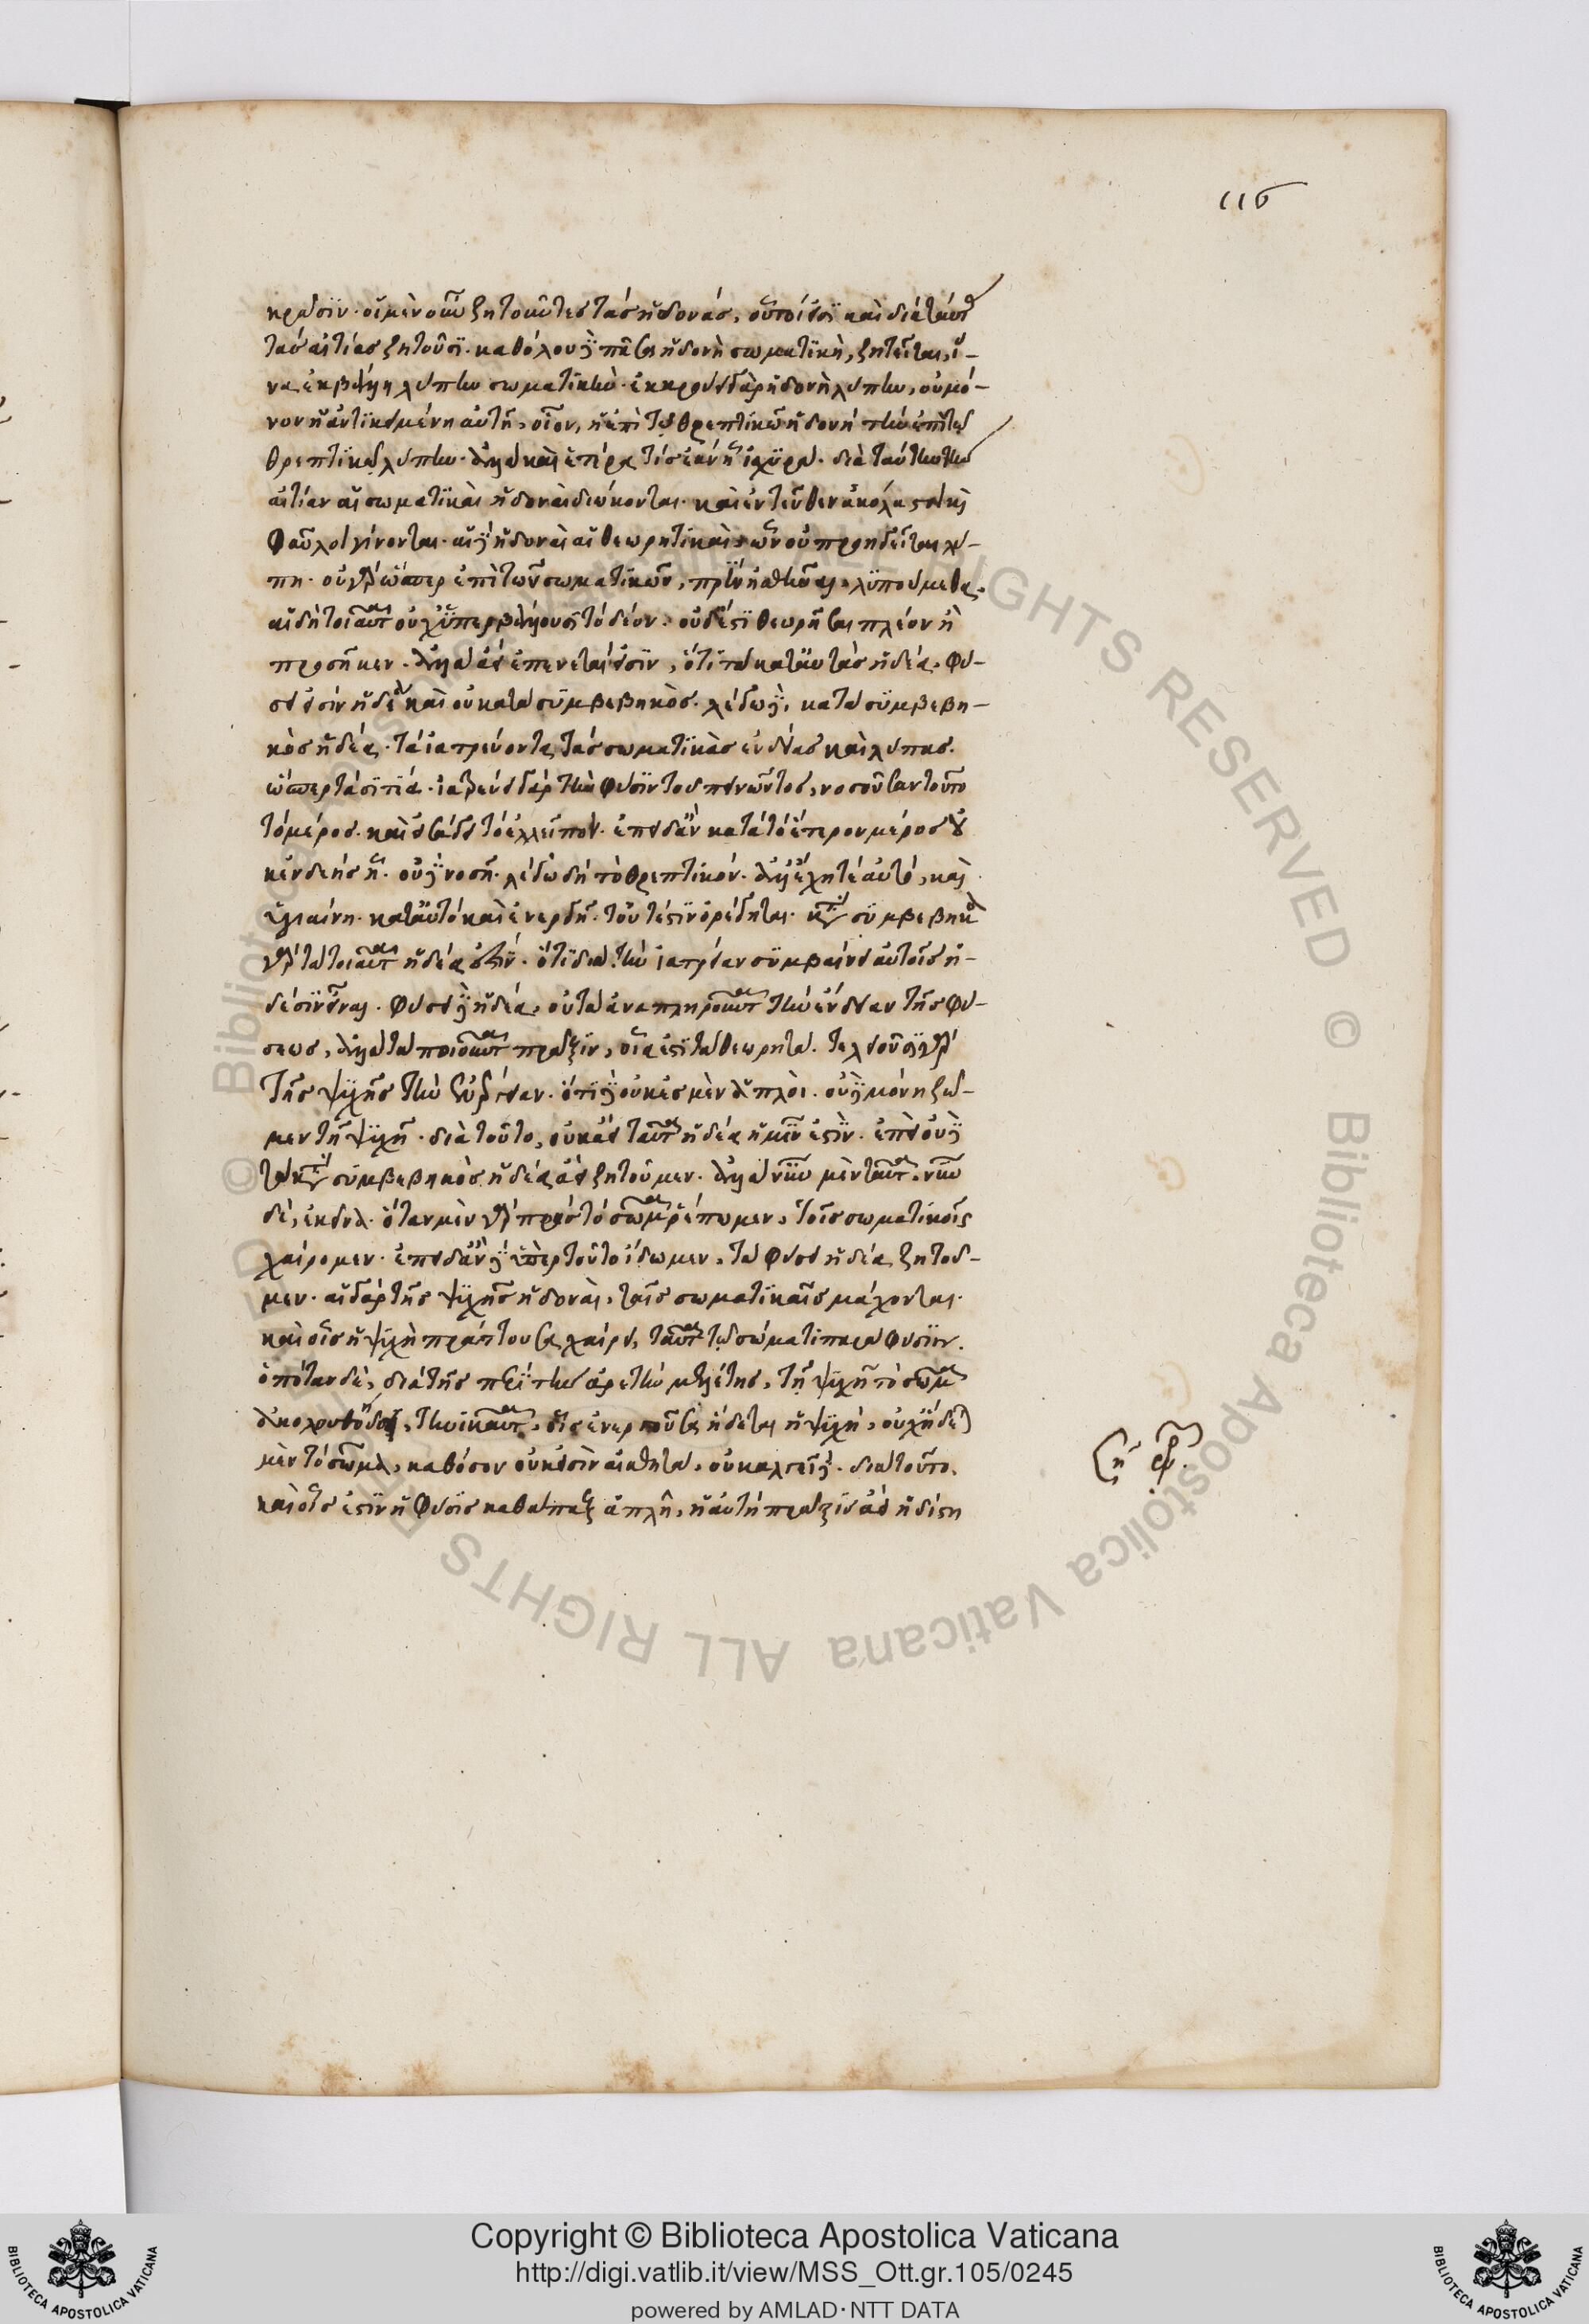 116
κρᾶσιν· οἱ μὲν οὖν ζητοῦντες τὰς ἡδονὰς, οὗτοί εἰσι καὶ διὰ ταύτ
τὰς αἰτίας ζητοῦσι· καθόλου δὲ πᾶσα ἡδονὴ σωματικὴ, ζητεῖται, ἵ-
να ἐκβάλῃ λύπην σωματικήν· ἐκκρούει γὰρ ἡδονὴ λύπην, οὐ μό-
νον ἡ ἀντικειμένη αὐτῇ, οἷον, ἡ ἐπὶ τῷ θρεπτικῷ ἡδονὴ τὴν ἐπὶ τῷ
θρεπτικῷ λύπην· ἀλλὰ καὶ ἑτέρα τίς ἐὰν ᾖ ἰσχυρά· διὰ ταύτην τὴν
αἰτίαν αἱ σωματικαὶ ἡδοναὶ διώκονται· καὶ ἐντεῦθεν ἀκόλαστοι καὶ
φαῦλοι γίνονται· αἱ δὲ ἡδοναὶ αἱ θεωρητικαὶ, ὧν οὐ προηγεῖται λύ-
πη· οὐ γὰρ ὥσπερ ἐπὶ τῶν σωματικῶν, πρὶν ἡσθῆναι, λυπούμεθα,
αἱ δὴ τοιαῦτ οὐχ ὑπερβάλλουσι τὸ δέον· οὐδέ ἐστι θεωρῆσαι πλέον ἢ
προσῆκεν· ἀλλὰ ἀεὶ ἐπαινεταί εἰσιν, ὅτι τὰ κατ' αὐτὰς ἡδέα, φύ-
σει εἰσὶν ἡδέα καὶ οὐ κατὰ συμβεβηκός· λέγω δὲ, κατὰ συμβεβη-
κὸς ἡδέα, τὰ ἰατρεύοντα τὰς σωματικὰς ἐνδείας καὶ λύπας·
ὥσπερ τὰ σιτία· ἰατρεύει γὰρ τὴν φύσιν τοῦ πεινῶντος, νοσοῦσαν τοῦτο
τὸ μέρος· καὶ εἰσάγει τὸ ἐλλεῖπον· ἐπειδὰν κατὰ τὸ ἕτερον μέρος οὐ
κ ἐνδεὴς ᾖ· οὐδὲ νοσῇ· λέγω δὴ τὸ θρεπτικόν· ἀλλ' ἔχῃ τε αὐτὸ, καὶ
ὑγιαίνῃ· κατ' αὐτὸ καὶ ἐνεργῇ· τουτέστιν ὀρέγηται· κατὰ συμβεβηκὸς
γὰρ τὰ τοιαῦτα ἡδέα ἐστίν· ὅτι διὰ τὴν ἰατρείαν συμβαίνει αὐτοῖς ἡ-
δέσιν εἶναι· φύσει δὲ ἡδέα, οὐ τὰ ἀναπληροῦντα τὴν ἔνδειαν τῆς φύ-
σεως, ἀλλὰ τὰ ποιοῦντα πρᾶξιν, οἷά ἐστι τὰ θεωρητά·
τῆς ψυχῆς τὴν ὅτι δὲ οὐκ ἐσμὲν ἁπλοῖ· οὐδὲ μόνῃ ζῶ-
μεν τῇ ψυχῇ· διὰ τοῦτο, οὐκ ἀεὶ ταῦτα ἡδέα ἡμῖν ἐστιν· ἐπεὶ οὐδὲ
τὰ κατὰ συμβεβηκὸς ἡδέα ἀεὶ ζητοῦμεν· ἀλλὰ νῦν μὲν ταῦτα, νῦν
δὲ, ἐκεῖνα· ὅταν μὲν γὰρ πρὸς τὸ σῶμα ῥέπωμεν, τοῖς σωματικοῖς
χαίρομεν· ἐπειδὰν δὲ ὑπὲρ τοῦτο ἴδωμεν, τὰ φύσει ἡδέα ζητοῦ-
μεν· αἱ γὰρ τῆς ψυχῆς ἡδοναὶ, ταῖς σωματικαῖς μάχονται·
καὶ οἷς ἡ ψυχὴ πράττουσα χαίρει, ταῦτα τῷ σώματι παρὰ φύσιν·
ὁπόταν δὲ, διὰ τῆς περὶ τὴν ἀρετὴν μελέτης, τῇ ψυχῇ τὸ σῶμα
ἀκολουθήσῃ, τηνικαῦτα, οἷς ἐνεργοῦσα ἥδεται ἡ ψυχὴ, οὐχ ἥδεται
μὲν τὸ σῶμα, καθόσον οὐκ εἰσὶν αἰσθητὰ, οὐκ ἀλγεῖ δέ· διὰ τοῦτο,
καὶ οἷς ἐστιν ἡ φύσις καθάπαξ ἁπλῆ, ἡ αὐτὴ πρᾶξις ἀεὶ ἡδίστη
Copyright © Biblioteca Apostolica Vaticana
http://digi.vatlib.it/view/MSS_Ott.gr.105/0245
powered by AMLAD·NTT DATA
BIBLIOTECA APOSTOLICA VATICANA
BIBLIOTECA APOSTOLICA VATICANA
© Biblioteca Apostolica Vaticana ALL RIGHTS RESERVED © Biblioteca Apostolica Vaticana ALL RIGHTS RESERVED